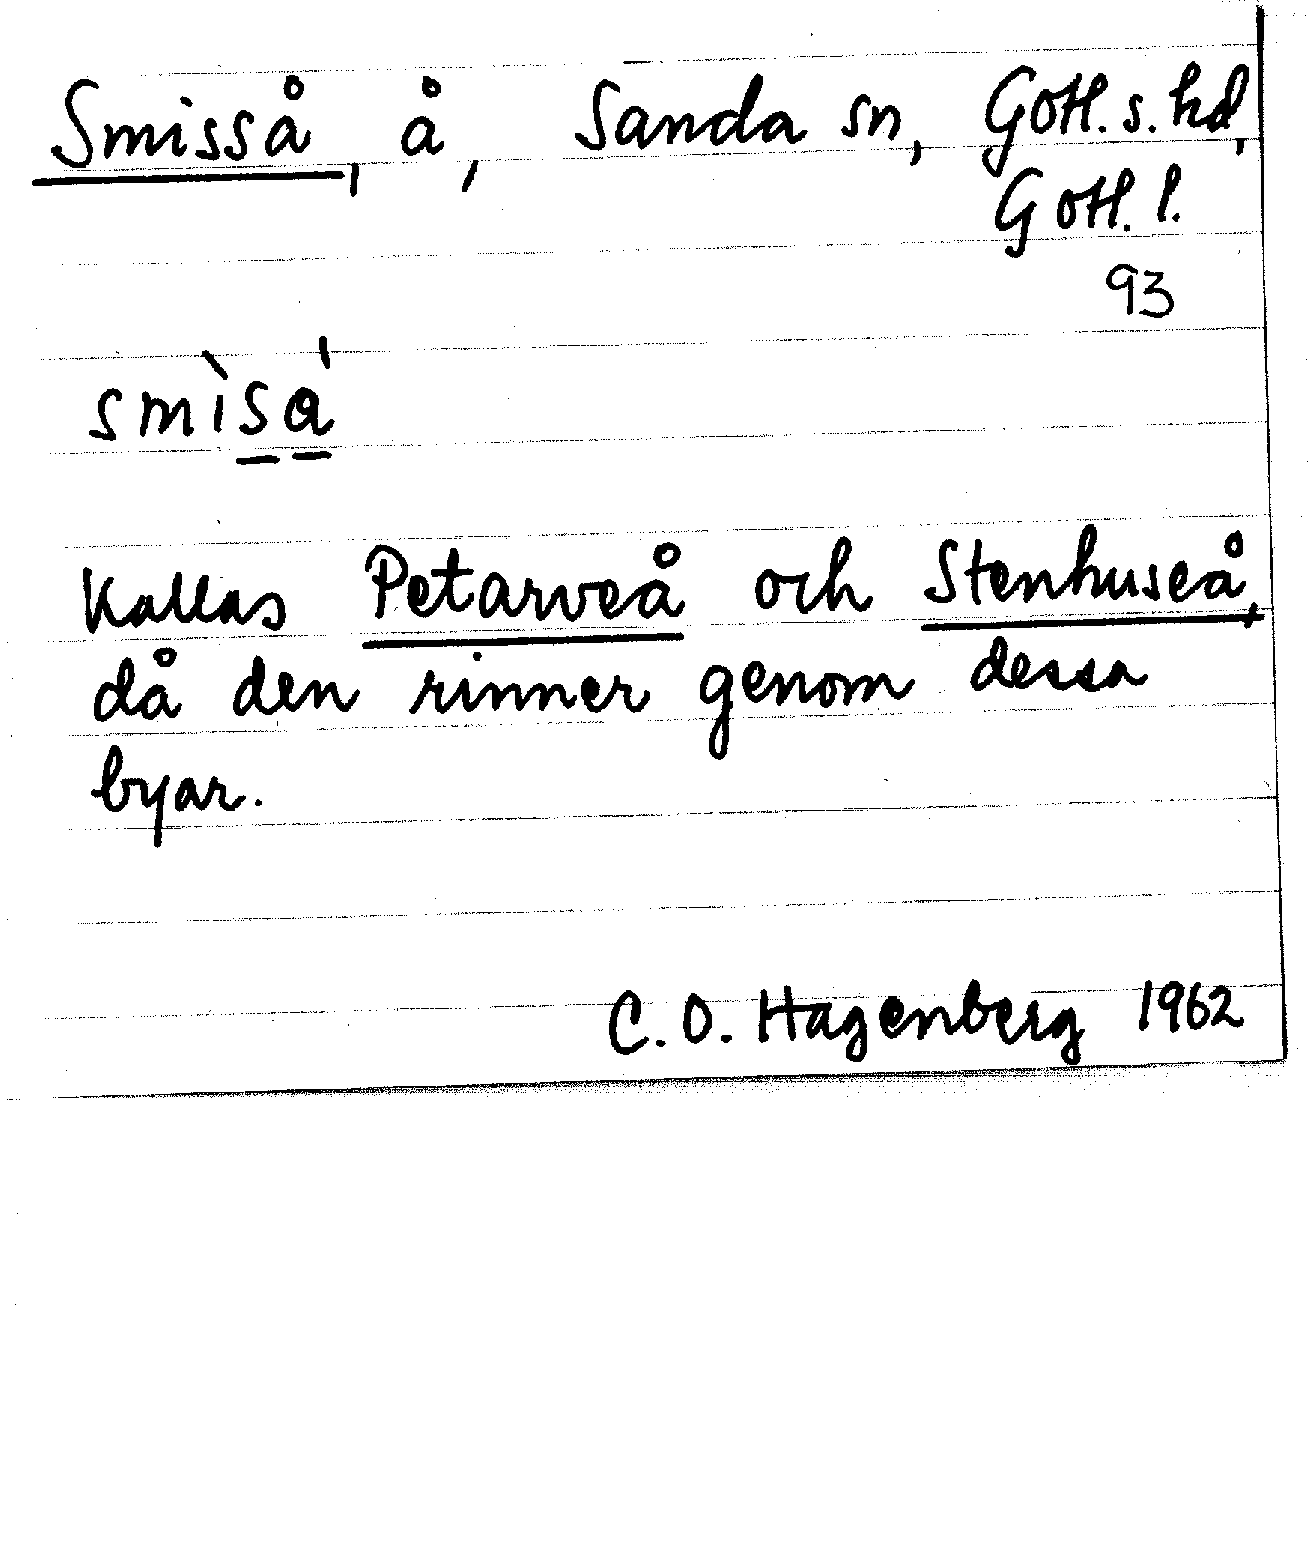 Smisså, å, Sanda sn, Gotl. s. hd,
Gotl. l.
93
smìsá
Kallas Petarveå och Stenhuseå,
då den rinner genom dessa
byar.
C. O. Hagenberg 1962